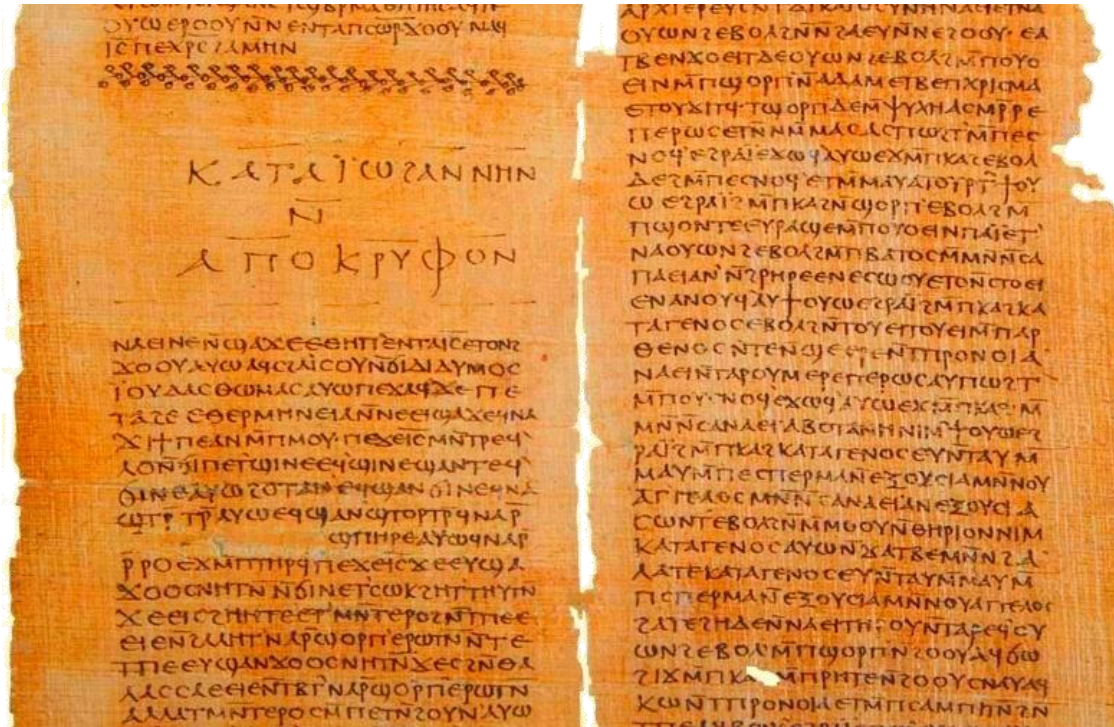 ⲟⲩⲱⲉⲣⲟⲟⲩⲛ̄ⲛⲉⲛⲧⲁⲡⲥⲱⲣ̄ϫⲟⲟⲩⲛⲁϥ
ⲓ̅ⲥ̅ⲡⲉⲭ̅ⲣ̅ⲥ̅ϩⲁⲙⲏⲛ
ⲕⲁⲧⲁⲓ̈ⲱϩⲁⲛⲛⲏⲛ
ⲛ̄
ⲁⲡⲟⲕⲣⲩⲫⲟⲛ
ⲛⲁⲉⲓⲛⲉⲛ̄ϣⲁϫⲉⲉⲑⲏⲡ'ⲉⲛⲧⲁⲓ̅ⲥ̅ⲉⲧⲟⲛϩ
ϫⲟⲟⲩⲁⲩⲱⲁϥⲥϩⲁⲓ̈ⲥⲟⲩⲛ̄ϭⲓⲇⲓⲇⲩⲙⲟⲥ
ⲓ̈ⲟⲩⲇⲁⲥⲑⲱⲙⲁⲥⲁⲩⲱⲡⲉϫⲁϥϫⲉⲡⲉ
ⲧⲁϩⲉⲉⲑⲉⲣⲙⲏⲛⲉⲓⲁⲛ̄ⲛⲉⲉⲓϣⲁϫⲉϥⲛⲁ
ϫⲓϯⲡⲉⲁⲛⲙ̄ⲡⲙⲟⲩ·ⲡⲉϫⲉⲓ̅ⲥ̅ⲙⲛ̄ⲧⲣⲉϥ'
ⲗⲟⲛ̄ϭⲓⲡⲉⲧϣⲓⲛⲉⲉϥϣⲓⲛⲉϣⲁⲛⲧⲉϥ'
ϭⲓⲛⲉⲁⲩⲱϩⲟⲧⲁⲛⲉϥϣⲁⲛϭⲓⲛⲉϥⲛⲁ
ϣⲧⲣ̄ⲧⲣ̄ⲁⲩⲱⲉϥϣⲁⲛϣⲧⲟⲣⲧⲣ̄ϥⲛⲁⲣ̄
ϣⲡⲏⲣⲉⲁⲩⲱϥⲛⲁⲣ̄
ⲣ̄ⲣⲟⲉϫⲙ̄ⲡⲧⲏⲣϥ'ⲡⲉϫⲉⲓ̅ⲥ̅ϫⲉⲉⲩϣⲁ
ϫⲟⲟⲥⲛⲏⲧⲛ̄ⲛ̄ϭⲓⲛⲉⲧⲥⲱⲕϩⲏⲧⲧⲏⲩⲧⲛ̄
ϫⲉⲉⲓⲥϩⲏⲏⲧⲉⲉⲧ'ⲙⲛ̄ⲧⲉⲣⲟϩⲛ̄ⲧⲡⲉⲉ
ⲉⲓⲉⲛ̄ϩⲁⲗⲏⲧ'ⲛⲁⲣ̄ϣⲟⲣⲡ'ⲉⲣⲱⲧⲛ̄ⲛ̄ⲧⲉ
ⲧⲡⲉⲉⲩϣⲁⲛϫⲟⲟⲥⲛⲏⲧⲛ̄ϫⲉⲥϩⲛ̄ⲑⲁ
ⲗⲁⲥⲥⲁⲉⲉⲓⲉⲛ̄ⲧⲃⲧ'ⲛⲁⲣ̄ϣⲟⲣⲡ'ⲉⲣⲱⲧⲛ̄
ⲁⲗⲗⲁⲧⲙⲛ̄ⲧⲉⲣⲟⲥⲙ̄ⲡⲉⲧⲛ̄ϩⲟⲩⲛⲁⲩⲱ
ⲟⲩⲱⲛϩⲉⲃⲟⲗϩⲛ̄ⲛ̄ϩⲁⲉⲩⲛ̄ⲛⲉϩⲟⲟⲩ·ⲉ
ⲧⲃⲉⲛ̄ϫⲟⲉⲓⲧⲇⲉⲟⲩⲱⲛϩⲉⲃⲟⲗϩⲙ̄ⲡⲟⲩⲟ
ⲉⲓⲛⲙ̄ⲡϣⲟⲣⲡ'ⲛ̄ⲁⲇⲁⲙⲉⲧⲃⲉⲡⲭⲣⲓⲥⲙⲁ
ⲧϣⲟⲣⲡⲇⲉⲙ̄ⲯⲩⲭⲏⲁⲥⲙⲣ̄ⲣⲉ
ⲡⲉⲣⲱⲥⲉⲧⲛⲙ̄ⲙⲁⲥⲁⲥⲡⲱϩⲧ'ⲙ̄ⲡⲉⲥ
ⲥⲛⲟϥ'ⲉϩⲣⲁⲓ̈ⲉϫⲱϥ'ⲁⲩⲱⲉϫⲙ̄ⲡⲕⲁϩⲉⲃⲟⲗ
ⲇⲉϩⲙ̄ⲡⲉⲥⲛⲟϥ'ⲉⲧⲙ̄ⲙⲁⲩⲁⲡⲟⲩⲣⲧϯⲟⲩ
ⲱⲉϩⲣⲁⲓ̈ϩⲙ̄ⲡⲕⲁϩⲛ̄ϣⲟⲣⲡ'ⲉⲃⲟⲗϩⲙ̄
ⲡϣⲟⲛⲧⲉⲉⲩⲣⲁϣⲉⲙ̄ⲡⲟⲩⲟⲉⲓⲛⲡⲁⲓ̈ⲉⲧ'
ⲛⲁⲟⲩⲱⲛϩⲉⲃⲟⲗϩⲙ̄ⲡⲃⲁⲧⲟⲥⲙⲛ̄ⲛ̄ⲥⲁ
ⲡⲁⲉⲓⲁⲛ̄ϩⲣⲏⲣⲉⲉⲛⲉⲥⲱⲟⲩⲉⲧⲟⲛ̄ⲥⲧⲟⲉⲓ
ⲉⲛⲁⲛⲟⲩϥ'ⲁⲩϯⲟⲩⲱⲉϩⲣⲁⲓ̈ϩⲙ̄ⲡⲕⲁϩⲕⲁ
ⲧⲁⲅⲉⲛⲟⲥⲉⲃⲟⲗϩⲛ̄ⲧⲟⲩⲉⲓⲧⲟⲩⲉⲓⲙ̄ⲡⲁⲣ
ⲑⲉⲛⲟⲥⲛ̄ⲧⲉⲛ̄ϣⲉⲉⲣⲉⲛ̄ⲧⲡⲣⲟⲛⲟⲓⲁ
ⲛⲁⲉⲓⲛ̄ⲧⲁⲣⲟⲩⲙⲉⲣⲉⲡⲉⲣⲱⲥⲁⲩⲡⲱϩⲧ
ⲙ̄ⲡⲟⲩⲥⲛⲟϥ'ⲉϫⲱϥ'ⲁⲩⲱⲉϫⲙ̄ⲡⲕⲁϩ·ⲙ̄
ⲙⲛ̄ⲛ̄ⲥⲁⲛⲁⲉⲓⲁⲃⲟⲧⲁⲛⲏⲛⲓⲙ'ϯⲟⲩⲱⲉϩ
ⲣⲁⲓ̈ϩⲙ̄ⲡⲕⲁϩⲕⲁⲧⲁⲅⲉⲛⲟⲥⲉⲩⲛ̄ⲧⲁⲩⲙ̄
ⲙⲁⲩⲙ̄ⲡⲉⲥⲡⲉⲣⲙⲁⲛ̄ⲉⲝⲟⲩⲥⲓⲁⲙⲛ̄ⲛⲟⲩ
ⲁⲅⲅⲉⲗⲟⲥⲙⲛ̄ⲛ̄ⲥⲁⲛⲁⲉⲓⲁⲛⲉⲝⲟⲩⲥⲓⲁ
ⲥⲱⲛⲧⲉⲃⲟⲗϩⲛ̄ⲙ̄ⲙⲟⲟⲩⲛ̄ⲑⲏⲣⲓⲟⲛⲛⲓⲙ
ⲕⲁⲧⲁⲅⲉⲛⲟⲥⲁⲩⲱⲛ̄ϫⲁⲧⲃⲉⲙⲛ̄ⲛ̄ϩⲁ
ⲗⲁⲧⲉⲕⲁⲧⲁⲅⲉⲛⲟⲥⲉⲩⲛ̄ⲧⲁⲩⲙ̄ⲙⲁⲩⲙ̄
ⲡⲥⲡⲉⲣⲙⲁⲛ̄ⲉⲝⲟⲩⲥⲓⲁⲙⲛ̄ⲛⲟⲩⲁⲅⲅⲉⲗⲟⲥ
ϩⲁⲧⲉϩⲏⲇⲉⲛ̄ⲛⲁⲉⲓⲧⲏⲣⲟⲩⲛ̄ⲧⲁⲣⲉϥⲟⲩ
ⲱⲛϩⲉⲃⲟⲗⲙ̄ⲡϣⲟⲣⲡ'ⲛ̄ϩⲟⲟⲩⲁϥϭⲱ
ϩⲓϫⲙ̄ⲡⲕⲁϩⲙ̄ⲡⲣⲏⲧⲉⲛ̄ϩⲟⲟⲩⲥⲛⲁⲩⲁϥ
ⲕⲱⲛ̄ⲧⲡⲣⲟⲛⲟⲓⲁⲉⲧⲙ̄ⲡⲥⲁⲙⲡⲓⲧⲛ̄ϩⲛ̄